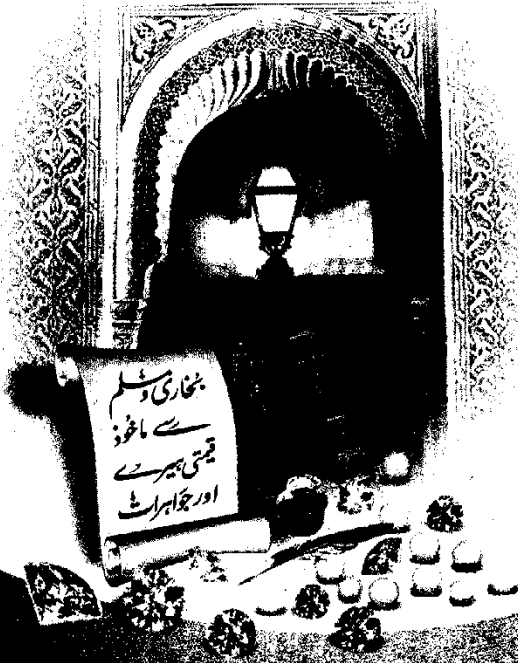 بخاری و مسلم
سے ماخوذ
قیمتی ہیرے
اور جواہرات